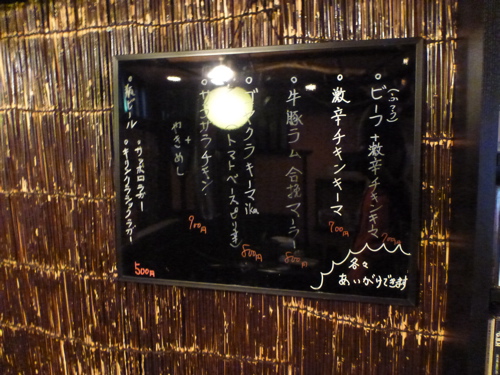 ビーフ+激辛チキンキーマ
激辛チキンキーマ
700円
牛豚ラム 合挽マーラー
800円
クラキーマika
トマトベースピリ辛
800円
チキン
+
やきめし
700円
瓶ビール
サッポロラガー
キリンクラシックラガー
500円
各々
あいがけできます